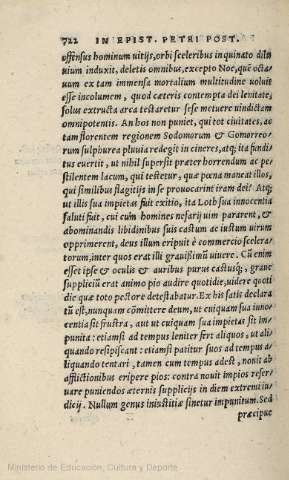 722 IN EPIST. PETRI POST.
offensus hominum uitijs, orbi sceleribus inquinato dilu
uium induxit, deletis omnibus, excepto Noë, quē octa
uum ex tam immensa mortalium multitudine uoluit
esse incolumem, quod cæteris contempta dei lenitate,
solus extructa arca testaretur sese metuere uindictam
omnipotentis. An hos non puniet, qui tot ciuitates, ac
tam florentem regionem Sodomorum & Gomorreo-
rum sulphurea pluuia redegit in cineres, atq; ita fundi
tus euertit, ut nihil supersit præter horrendum ac pe-
stilentem lacum, qui testetur, quæ pœna maneat illos,
qui similibus flagitijs in se prouocarint iram dei? Atq;
ut illis sua impietas fuit exitio, ita Loth sua innocentia
saluti fuit, cui cùm homines nefarij uim pararent, &
abominandis libidinibus suis castum ac iustum uirum
opprimerent, deus illum eripuit è commercio scelera-
torum, inter quos erat illi grauißimū uiuere. Cū enim
esset ipse & oculis & auribus purus castusq;, graue
suppliciū erat animo pio audire quotidie, uidere quoti
die quæ toto pectore detestabatur. Ex his satis declara
tū est, nunquam cōmittere deum, ut cuiquam sua inno-
centia sit frustra, aut ut cuiquam sua impietas sit im-
punita: etiamsi ad tempus leniter fert aliquos, ut ali-
quando resipiscant: etiamsi patitur suos ad tempus a-
liquando tentari, tamen cum tempus adest, nouit ab
afflictionibus eripere pios: contra nouit impios reser-
uare puniendos æternis supplicijs in diem extremi iu-
dicij. Nullum genus iniustitiæ sinetur impunitum. Sed
præcipue
Ministerio de Educación, Cultura y Deporte